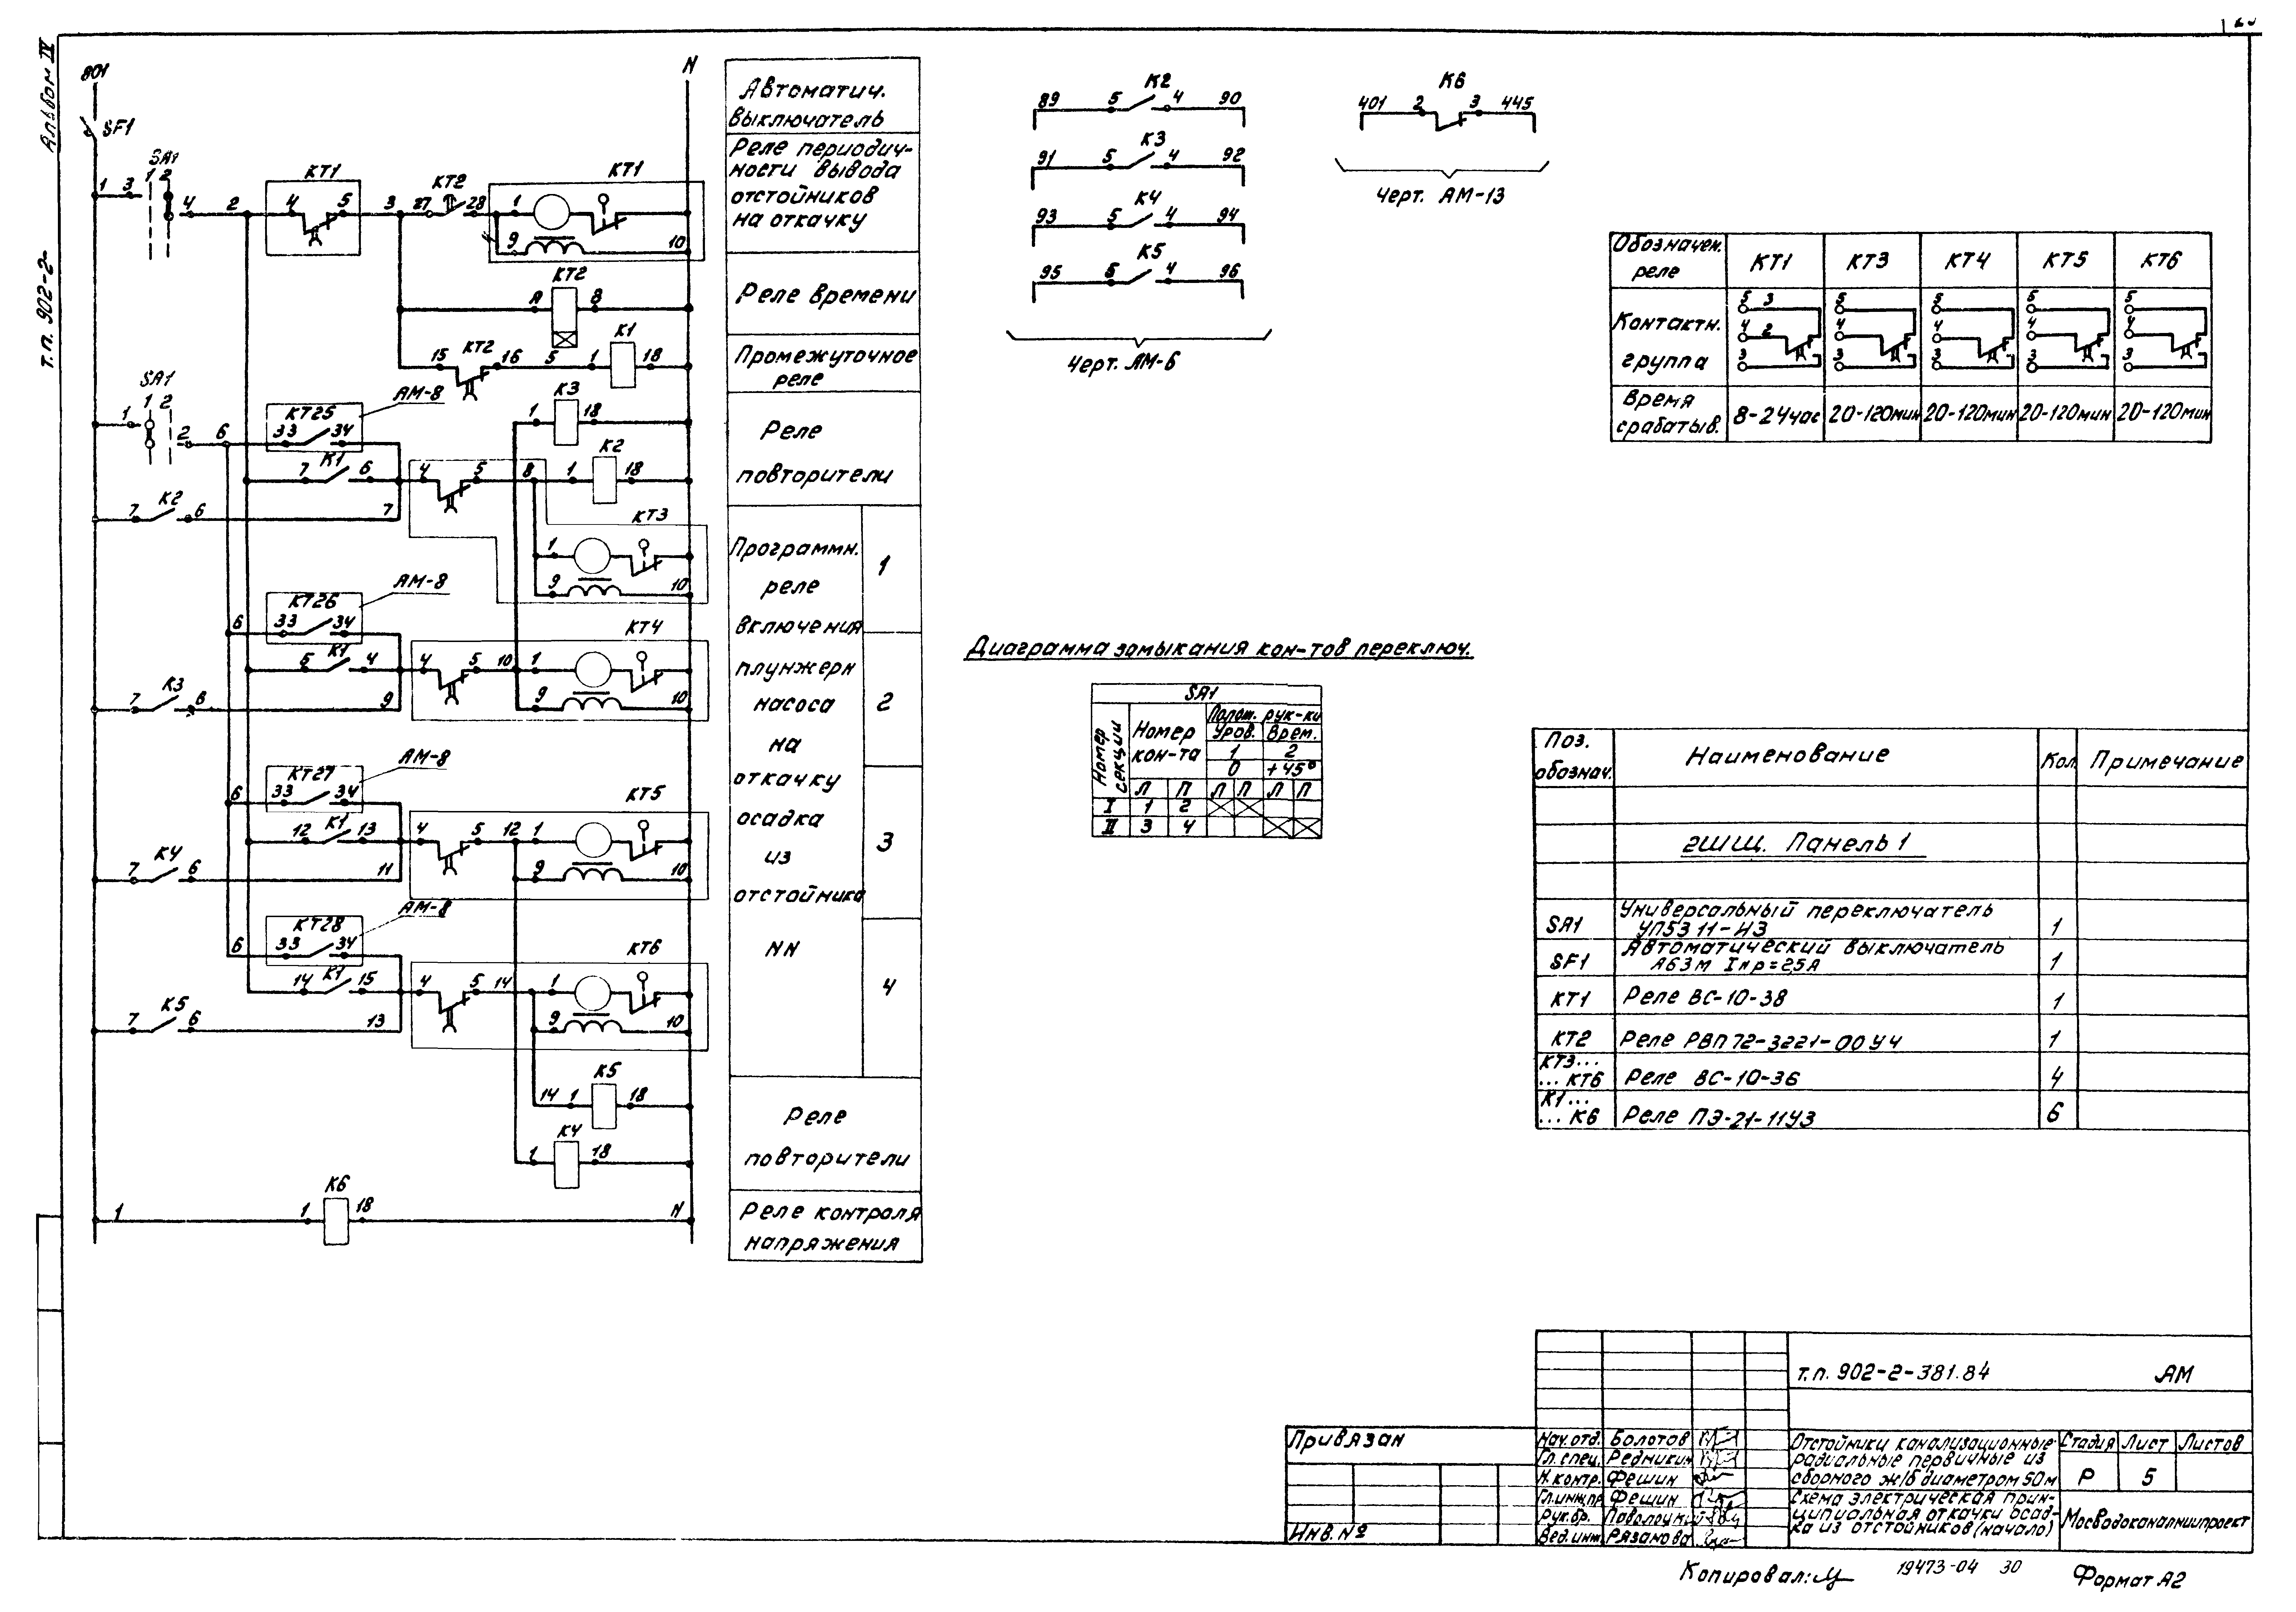 Альбом IV
т.п. 902-2-
801
N
SF1
SA1
1 2
1 3
4
2
КТ1
4 5
3
КТ2
27 28
КТ1
1
9
10
КТ2
А В
КТ2
15 16
5
К1
1 18
SA1
1 2
1
2
6
КТ25
33 34
АМ-8
К3
1 18
К1
7 6
4 5
8
К2
1 18
К2
7 6
7
КТ3
1
9
10
КТ26
33 34
АМ-8
6
К1
5 4
4 5
10
КТ4
1
9
10
К3
7 6
9
КТ27
33 34
АМ-8
6
К1
12 13
4 5
12
КТ5
1
9
10
К4
7 6
11
КТ28
33 34
АМ-8
6
К1
14 15
4 5
14
КТ6
1
9
10
К5
7 6
13
К5
14 1 18
К4
1 18
К6
1
1 18
N
Автоматич.
выключатель
Реле периодич-
ности вывода
отстойников
на откачку
Реле времени
Промежуточное
реле
Реле
повторители
Программн.
реле
включения
плунжерн
насоса
на
откачку
осадка
из
отстойника
NN
1
2
3
4
Реле
повторители
Реле контроля
напряжения
К2
89 5 4 90
К3
91 5 4 92
К4
93 5 4 94
К5
95 5 4 96
Черт. АМ-6
К6
401 2 3 445
Черт. АМ-13
Обозначен.
реле
КТ1 КТ3 КТ4 КТ5 КТ6
Контактн.
группа
5 3
4 2
3
5
4
3
5
4
3
5
4
3
5
4
3
Время
срабатыв.
8-24час 20-120мин 20-120мин 20-120мин 20-120мин
Диаграмма замыкания кон-тов переключ.
SA1
Номер
секции
Номер
кон-та
Полож. рук-ки
Уров. Врем.
1 2
0 +45°
Л П Л П Л П
I 1 2
II 3 4
Поз.
обознач.
Наименование
Кол
Примечание
2ШЩ. Панель 1
SA1 Универсальный переключатель
УП5311-И3 1
SF1 Автоматический выключатель
А63м Iнр=2.5А 1
КТ1 Реле ВС-10-38 1
КТ2 Реле РВП72-3221-00У4 1
КТ3...
...КТ6 Реле ВС-10-36 4
К1...
...К6 Реле ПЭ-21-11У3 6
т.п. 902-2-381.84 АМ
Привязан
Инв. №
Нач.отд. Болотов
Гл.спец. Редникин
Н.контр. Фешин
Гл.инж.пр Фешин
Рук.бр.
Вед.инж. Рязанова
Отстойники канализационные
радиальные первичные из
сборного ж/б диаметром 50м
Стадия Лист Листов
Р 5
Схема электрическая прин-
ципиальная откачки осад-
ка из отстойников (начало)
Мосводоканалниипроект
Копировал:
19473-04 30
Формат А2